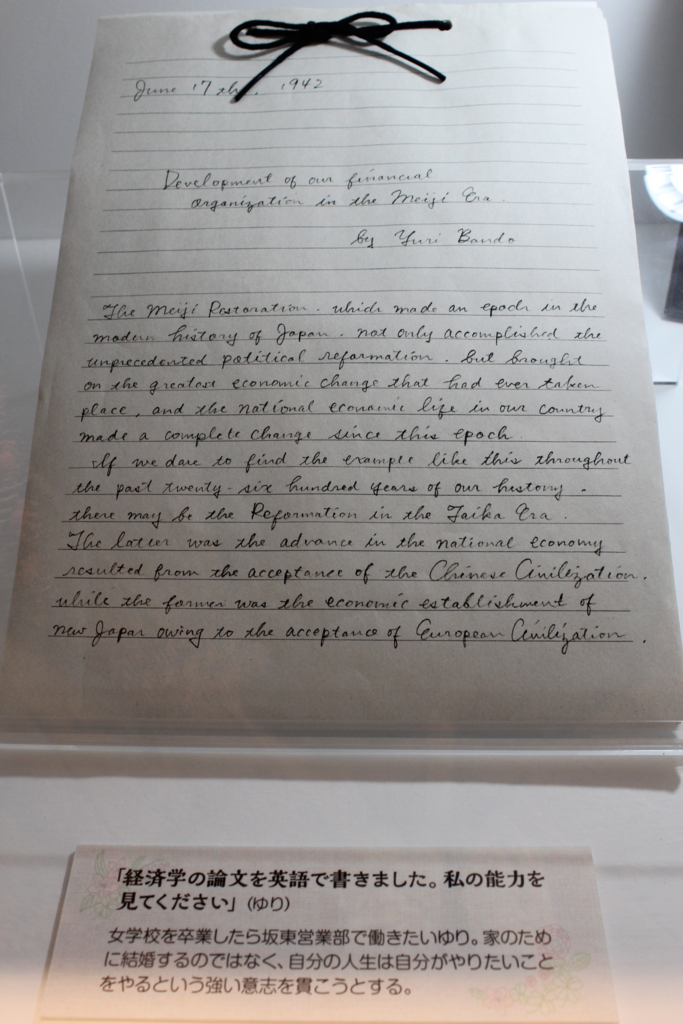 June 17th, 1942
Development of our financial
organization in the Meiji Era.
by Yuri Bando
The Meiji Restoration, which made an epoch in the
modern history of Japan, not only accomplished the
unprecedented political reformation, but brought
on the greatest economic change that had ever taken
place, and the national economic life in our country
made a complete change since this epoch.
If we dare to find the example like this throughout
the past twenty-six hundred years of our history,
there may be the Reformation in the Taika Era.
The latter was the advance in the national economy
resulted from the acceptance of the Chinese Civilization,
while the former was the economic establishment of
new Japan owing to the acceptance of European Civilization.
「経済学の論文を英語で書きました。私の能力を
見てください」(ゆり)
女学校を卒業したら坂東営業部で働きたいゆり。家のため
に結婚するのではなく、自分の人生は自分がやりたいこと
をやるという強い意志を貫こうとする。